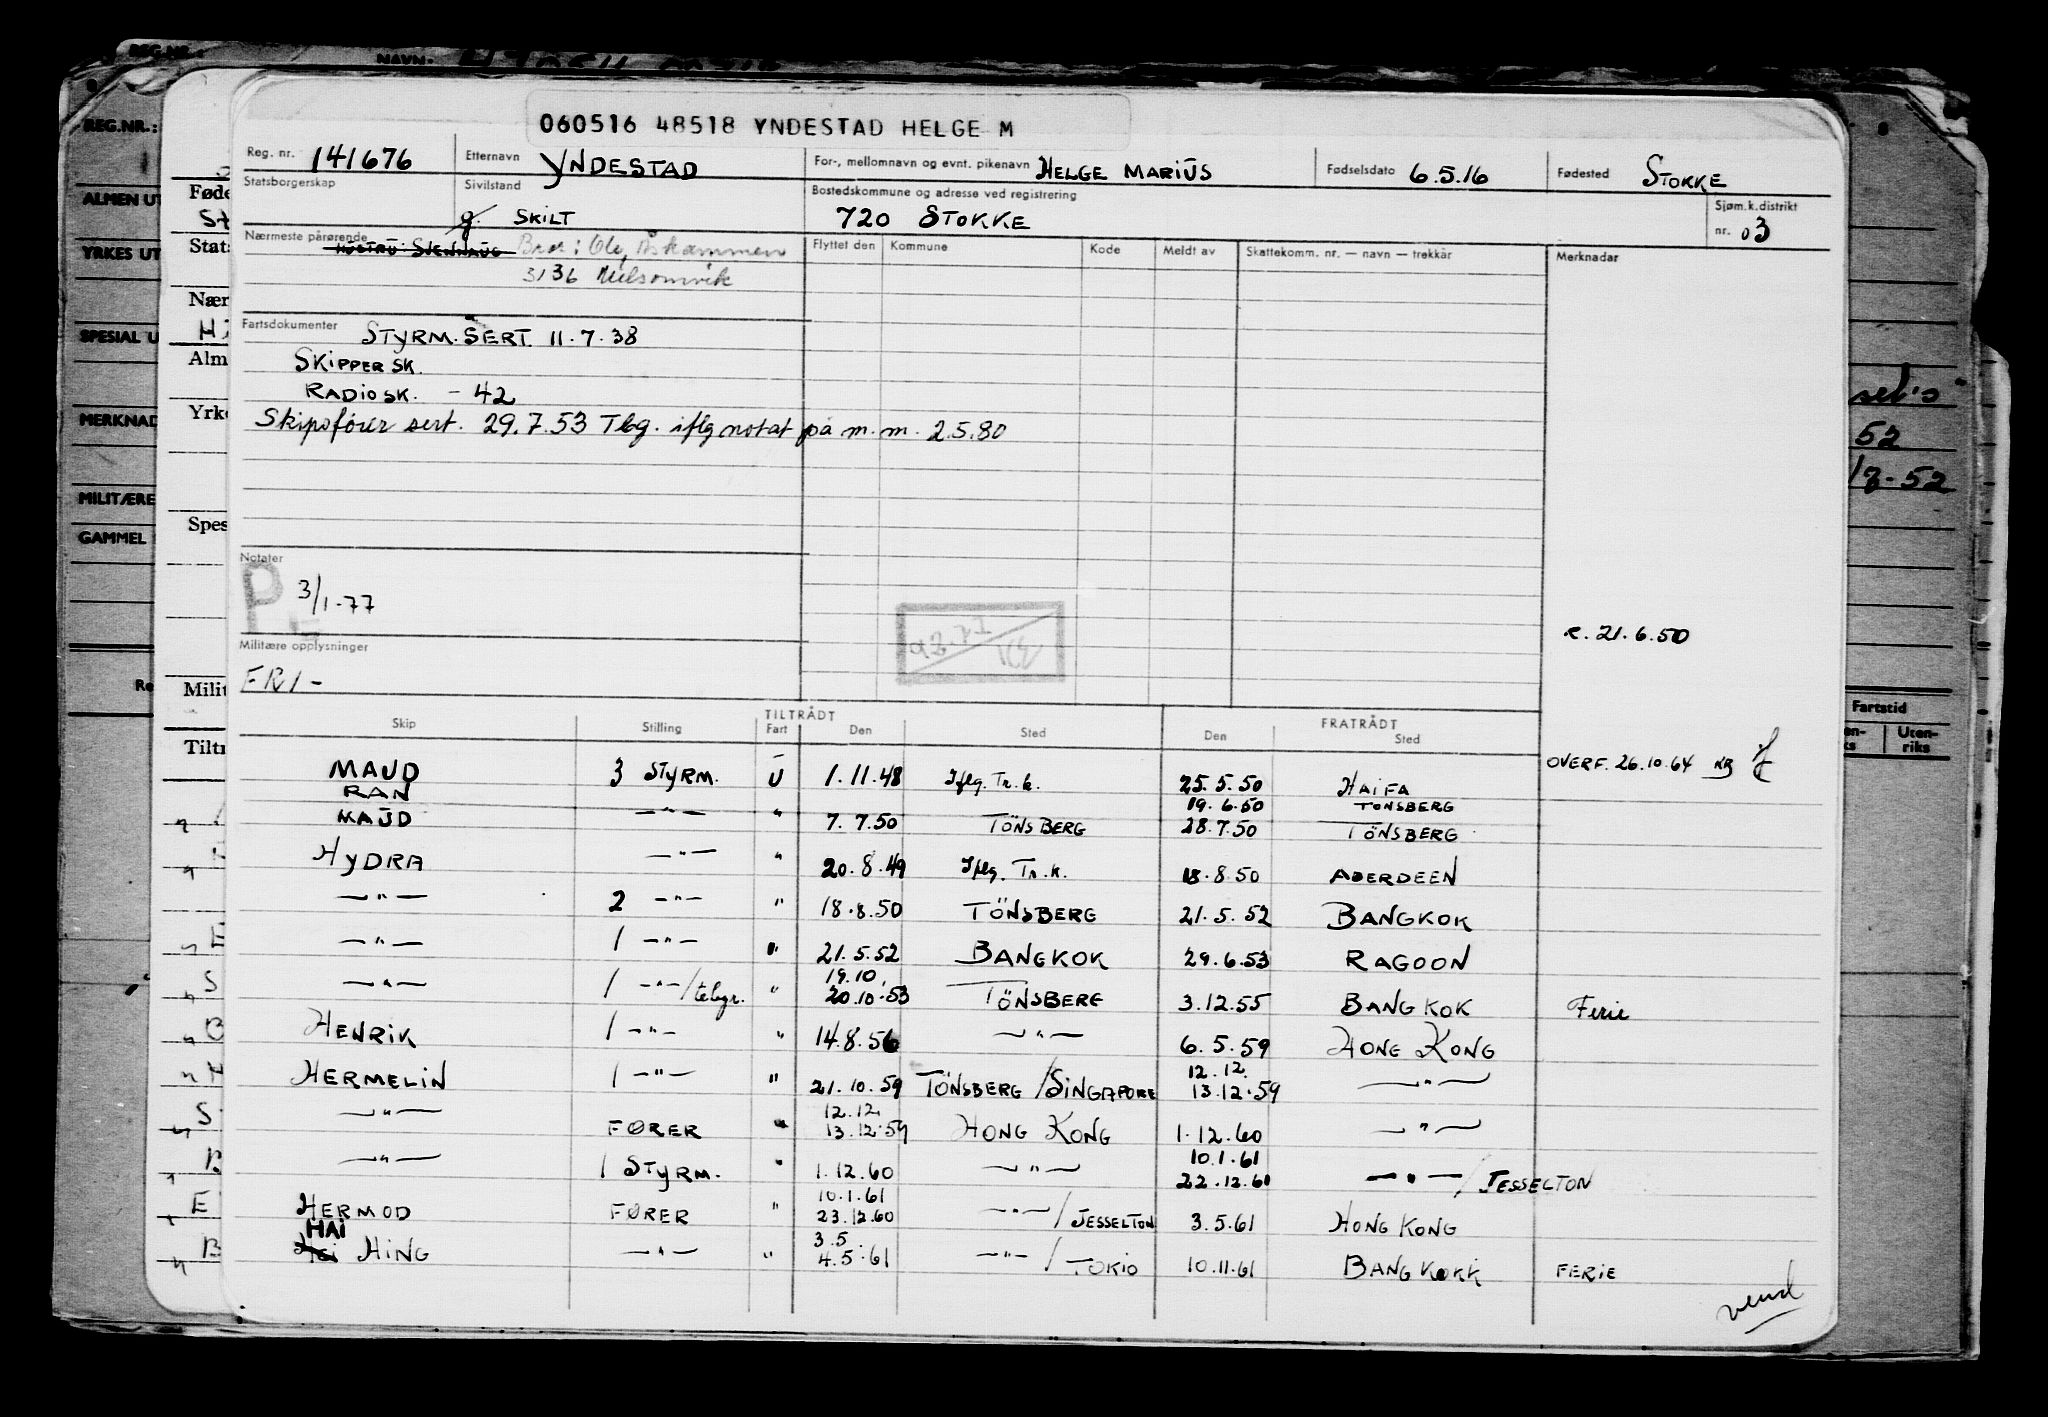 060516 48518 YNDESTAD HELGE M
Reg. nr. 141676 Etternavn YNDESTAD For-, mellomnavn og evnt. pikenavn HELGE MARIUS Fødselsdato 6.5.16 Fødested STOKKE
Statsborgerskap Sivilstand g. SKILT Bostedskommune og adresse ved registrering 720 STOKKE Sjøm.k.distrikt nr. 03
Nærmeste pårørende HUSTRU: Bror: Ole, Åskammen Flyttet den Kommune Kode Meldt av Skattekomm. nr. — navn — trekkår Merknadar
3136
Fartsdokumenter STYRM. SERT. 11.7.38
SKIPPER SK.
RADIOSK. - 42
Skipsfører sert. 29.7.53 Tbg. iflg notat på m.m. 2.5.80
Notater
P 3/1-77
r. 21.6.50
Militære opplysninger
FRI -
Skip Stilling TILTRÅDT Fart Den Sted FRATRÅDT Den Sted
OVERF. 26.10.64
MAUD 3 STYRM. U 1.11.48 Iflg. Tr.k. 25.5.50 HAIFA
RAN 19.6.50 TÖNSBERG
MAUD —"— " 7.7.50 TÖNSBERG 28.7.50 TÖNSBERG
HYDRA —"— " 20.8.49 Iflg. Tr.k. 18.8.50 ABERDEEN
—"— 2 —"— " 18.8.50 TÖNSBERG 21.5.52 BANGKOK
—"— 1 —"— " 21.5.52 BANGKOK 29.6.53 RAGOON
—"— 1 —"—/telegr. " 19.10. 20.10.53 TÖNSBERG 3.12.55 BANGKOK Ferie
HENRIK 1 —"— " 14.8.56 —"— 6.5.59 HONG KONG
HERMELIN 1 —"— " 21.10.59 TÖNSBERG/SINGAPORE 12.12. 13.12.59 —"—
—"— FØRER " 12.12. 13.12.59 HONG KONG 1.12.60 —"—
—"— 1 STYRM. " 1.12.60 —"— 10.1.61 22.12.60 —"—/JESSELTON
HERMOD FØRER " 10.1.61 23.12.60 —"—/JESSELTON 3.5.61 HONG KONG
HAI
Hai HING —"— " 3.5. 4.5.61 —"—/TOKIO 10.11.61 BANGKOKK FERIE
vend
REG.NR.:
NAVN:
REG.NR.:
ALMEN UT
YRKES UT
SPESIAL U
MERKNAD
MILITÆRE
GAMMEL
Føde
Stats
Nær
Alm
Yrke
Spes
Milit
Tiltr
52
18-52
Fartstid
Uten-
riks